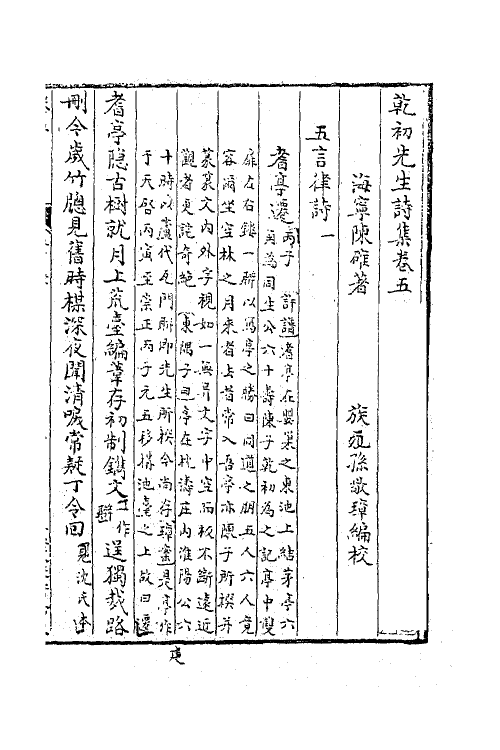 乾初先生詩集卷五
海寧陳確著
族葅孫敬璋編校
五言律詩一
耆亭遷丙子 許譜耆亭在嬰巢之東池上結茅亭六
角為同生公六十壽陳子乾初為之記亭中雙
扉左右鐫一聯以寫亭之勝曰同道之朋五人六人竟
容商坐空林之月來者去者常入吾亭亦陳子所禊并
篆篆文內外字視如一無異文字中空而板不斷遠近
觀者更詫奇絕 東隅子曰亭在枕濤庄內淮陽公六
十時以處代瓦門聯即先生所撰今尚存璋案是亭作
于天啓丙寅至崇正丙子元五移構池臺之上故曰遷
耆亭隱古樹就月上荒臺編葦存初制鐫文一作壁逞獨裁路
刪今歲竹牕見舊時楳深夜聞清唳常疑丁令回見沈氏